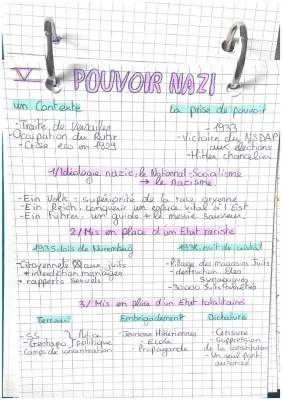 V
POUVOIR NAZI
un Contexte
La prise de pouvoir
- Traité de Versailles
- Occupation du Ruhr
- Crise eco en 1929
- 1933
- Victoire du NSDAP
aux élections
- Hitler chancelier
1/ Idéologie nazie: le National-Socialisme
→ le nazisme
- Ein Volk : supériorité de la race aryenne
- Ein Reich: conquérir un espace vital à l'Est
- Ein Führer: un guide + le messie sauveur.
2/ Mis en place d'un Etat raciste
1935: lois de Nuremberg
1938: nuit de cristal
- Citoyenneté aux juifs
+ interdiction mariages
+ rapports sexuels
- Pillage des magasins Juifs
- destruction des
synagogues
- 30 000 Juifs
3/ Mis en place d'un Etat totalitaire
Terreur
Embrigadement
Dictature
- SS
- Gestapo
police
politique
- Camps de concentration
- Jeunesse Hitlériennes
- Ecole
- Propagande
- Censure
- Suppression
de la constitution
- Un seul parti
autorisé